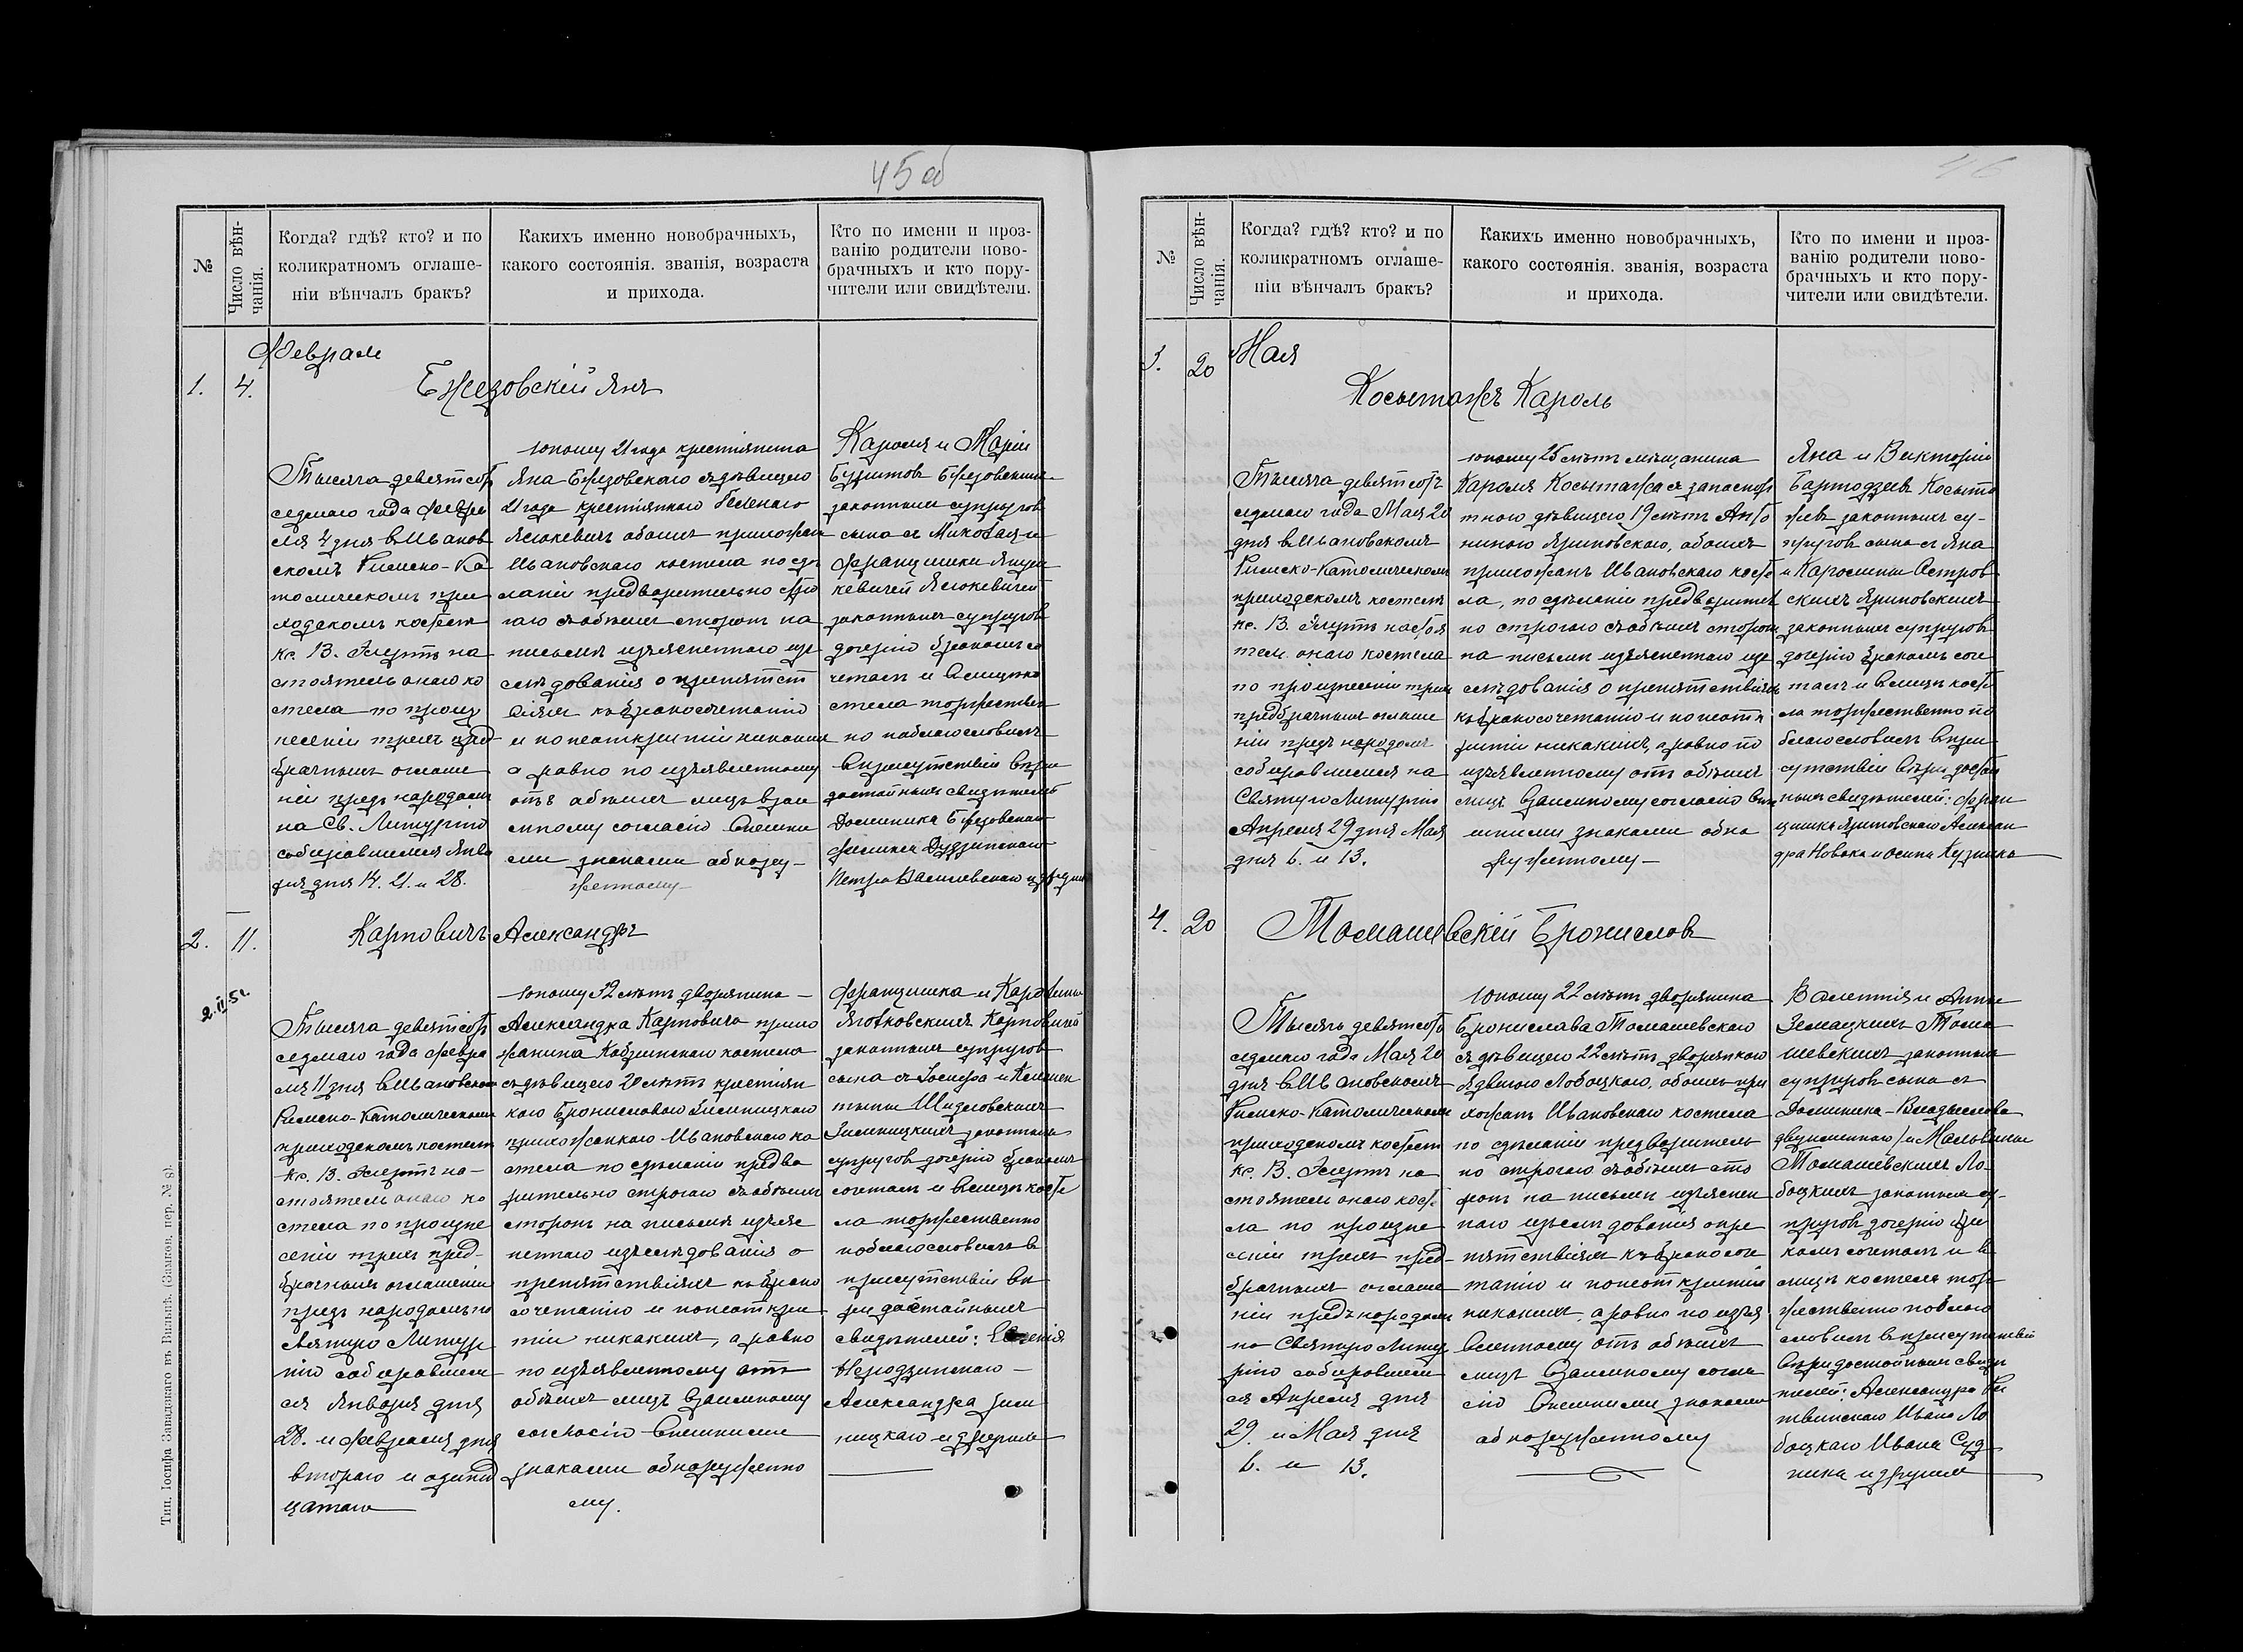 45об
№
Число вѣн-
чанія.
Когда? гдѣ? кто? и по
коликратномъ оглаше-
ніи вѣнчалъ бракъ?
Какихъ именно новобрачныхъ,
какого состоянія. званія, возраста
и прихода.
Кто по имени и проз-
ванію родители ново-
брачныхъ и кто пору-
чители или свидѣтели.
Февраля
1. 4.
Бжезовскій Янъ
Тысяча девятсотъ
седмаго года Февра
ля 4 дня въ Иванов
скомъ Римско-Ка
толическомъ при
ходскомъ костелѣ
кс. В. на
стоятель онаго ко
стела по произ
несеніи трехъ пред
брачныхъ оглаше
ній предъ народомъ
на Св. Литургію
собиравшимся Янва
ря дня 14. 21. и 28.
юношу 21 года крестьянина
Яна Бжезовскаго съ дѣвицею
21 года крестьянкою Еленою
Яслюкевичъ обоихъ прихожанъ
Ивановскаго костела по сдѣ
ланіи предварительно стро
гаго съ обѣихъ сторонъ на
письмѣ изъясненнаго изс
лѣдованія о препятст
віяхъ къ бракосочетанію
и по неоткрытіи никакихъ
а равно по изъявленному
отъ обѣихъ лицъ взаи
мному согласію внѣшни
ми знаками обнару-
женному
Кароля и Маріи
Бжезовскихъ
законныхъ супруговъ
сына съ Миколая и
Францишки
Яслюкевичей
законныхъ супруговъ
дочерію бракомъ со
четалъ и въ лицѣ ко
стела торжествен
но поблагословилъ
въ присутствіи вѣри
достойныхъ свидѣтелей
Доминика Бжезовскаго
Феликса Дудзинскаго
Петра Василевскаго и другихъ
2. 11.
Карповичъ Александръ
2.IV.51.
Тысяча девятсотъ
седмаго года Февра
ля 11 дня въ Ивановскомъ
Римско-Католическомъ
приходскомъ костелѣ
кс. В. на-
стоятель онаго ко
стела по произне
сеніи трехъ пред-
брачныхъ оглашеній
предъ народомъ на
Святую Литур
гію собиравшим
ся Января дня
28. и Февраля дня
втораго и одинад
цатаго
юношу 32 лѣтъ дворянина
Александра Карповича прихо
жанина Кобринскаго костела
съ дѣвицею 20 лѣтъ крестьян
кою Брониславою Зилиницкаго
прихожанкою Ивановскаго ко
стела по сдѣланіи предва
рительно строгаго съ обѣихъ
сторонъ на письмѣ изъяс
неннаго изслѣдованія о
препятствіяхъ къ брако
сочетанію и по неоткры
тіи никакихъ, а равно
по изъявленному отъ
обѣихъ лицъ взаимному
согласію внѣшними
знаками обнаруженно
му.
Францишка и Каролины
Яголковскихъ Карповичей
законныхъ супруговъ
сына съ Іосифа и Клемен
тины Шидловскихъ
Зилиницкихъ законныхъ
супруговъ дочерію бракомъ
сочеталъ и въ лицѣ косте
ла торжественно
поблагословилъ въ
присутствіи вѣ
ри достойныхъ
свидѣтелей: Евгенія
Неродзинскаго
Александра Зили
ницкаго и другихъ
Тип. Іосифа Завадзкаго въ Вильнѣ. (Замков. пер. № 8).
№
Число вѣн-
чанія.
Когда? гдѣ? кто? и по
коликратномъ оглаше-
ніи вѣнчалъ бракъ?
Какихъ именно новобрачныхъ,
какого состоянія. званія, возраста
и прихода.
Кто по имени и проз-
ванію родители ново-
брачныхъ и кто пору-
чители или свидѣтели.
3. 20
Мая
Косытажъ Кароль
Тысяча девятсотъ
седмаго года Мая 20
дня въ Ивановскомъ
Римско-Католическомъ
приходскомъ костелѣ
кс. В. настоя
тель онаго костела
по произнесеніи трехъ
предбрачныхъ оглаше
ній предъ народомъ
собиравшимся на
Святую Литургію
Апреля 29 дня Мая
дня 6. и 13.
юношу 25 лѣтъ мѣщанина
Кароля Косытажа съ
дѣвицею 19 лѣтъ Анто
ниною Яриновскаго, обоихъ
прихожанъ Ивановскаго косте
ла, по сдѣланіи предварител
но строгаго съ обѣихъ сторонъ
на письмѣ изъясненнаго изс
лѣдованія о препятствіяхъ
къ бракосочетанію и по неотк
рытіи никакихъ, а равно по
изъявленному отъ обѣихъ
лицъ взаимному согласію внѣ
шними знаками обна
руженному
Яна и Викторіи
Косыта
жевъ законныхъ су-
пруговъ сына съ Яна
и Каролины Остров
скихъ Яриновскихъ
законныхъ супруговъ
дочерію бракомъ соче
талъ и въ лицѣ косте
ла торжественно по
благословилъ въ при
сутствіи вѣри достой
ныхъ свидѣтелей: Фран
цишка Яриновскаго Алексан
дра Новака и Осипа Кузмика
4. 20
Томашевскій Брониславъ
Тысяча девятсотъ
седмаго года Мая 20
дня въ Ивановскомъ
Римско-Католическомъ
приходскомъ костелѣ
кс. В. на
стоятель онаго косте
ла по произне
сеніи трехъ пред-
брачныхъ оглаше
ній предъ народомъ
на Святую Литур
гію собиравшим
ся Апреля дня
29. и Мая дня
6. и 13.
юношу 22 лѣтъ дворянина
Бронислава Томашевскаго
съ дѣвицею 22 лѣтъ дворянкою
Ядвигою Лобоцкаго, обоихъ при
хожанъ Ивановскаго костела
по сдѣланіи предваритель
но строгаго съ обѣихъ сто
ронъ на письмѣ изъяснен
наго изслѣдованія о пре
пятствіяхъ къ бракосоче
танію и по неоткрытіи
никакихъ, а равно по изъя
вленному отъ обѣихъ
лицъ взаимному согла
сію внѣшними знаками
обнаруженному
Валентія и Анны
Земацкихъ Тома
шевскихъ законныхъ
супруговъ сына съ
Доминика-Владыслава
двуименнаго и Мальвины
Томашевскихъ Ло
боцкихъ законныхъ су-
пруговъ дочерію бра
комъ сочеталъ и въ
лицѣ костела тор
жественно поблаго
словилъ въ присутствіи
вѣри достойныхъ свидѣ
телей: Александра
Ивана Ло
боцкаго Ивана Суд
ника и другихъ